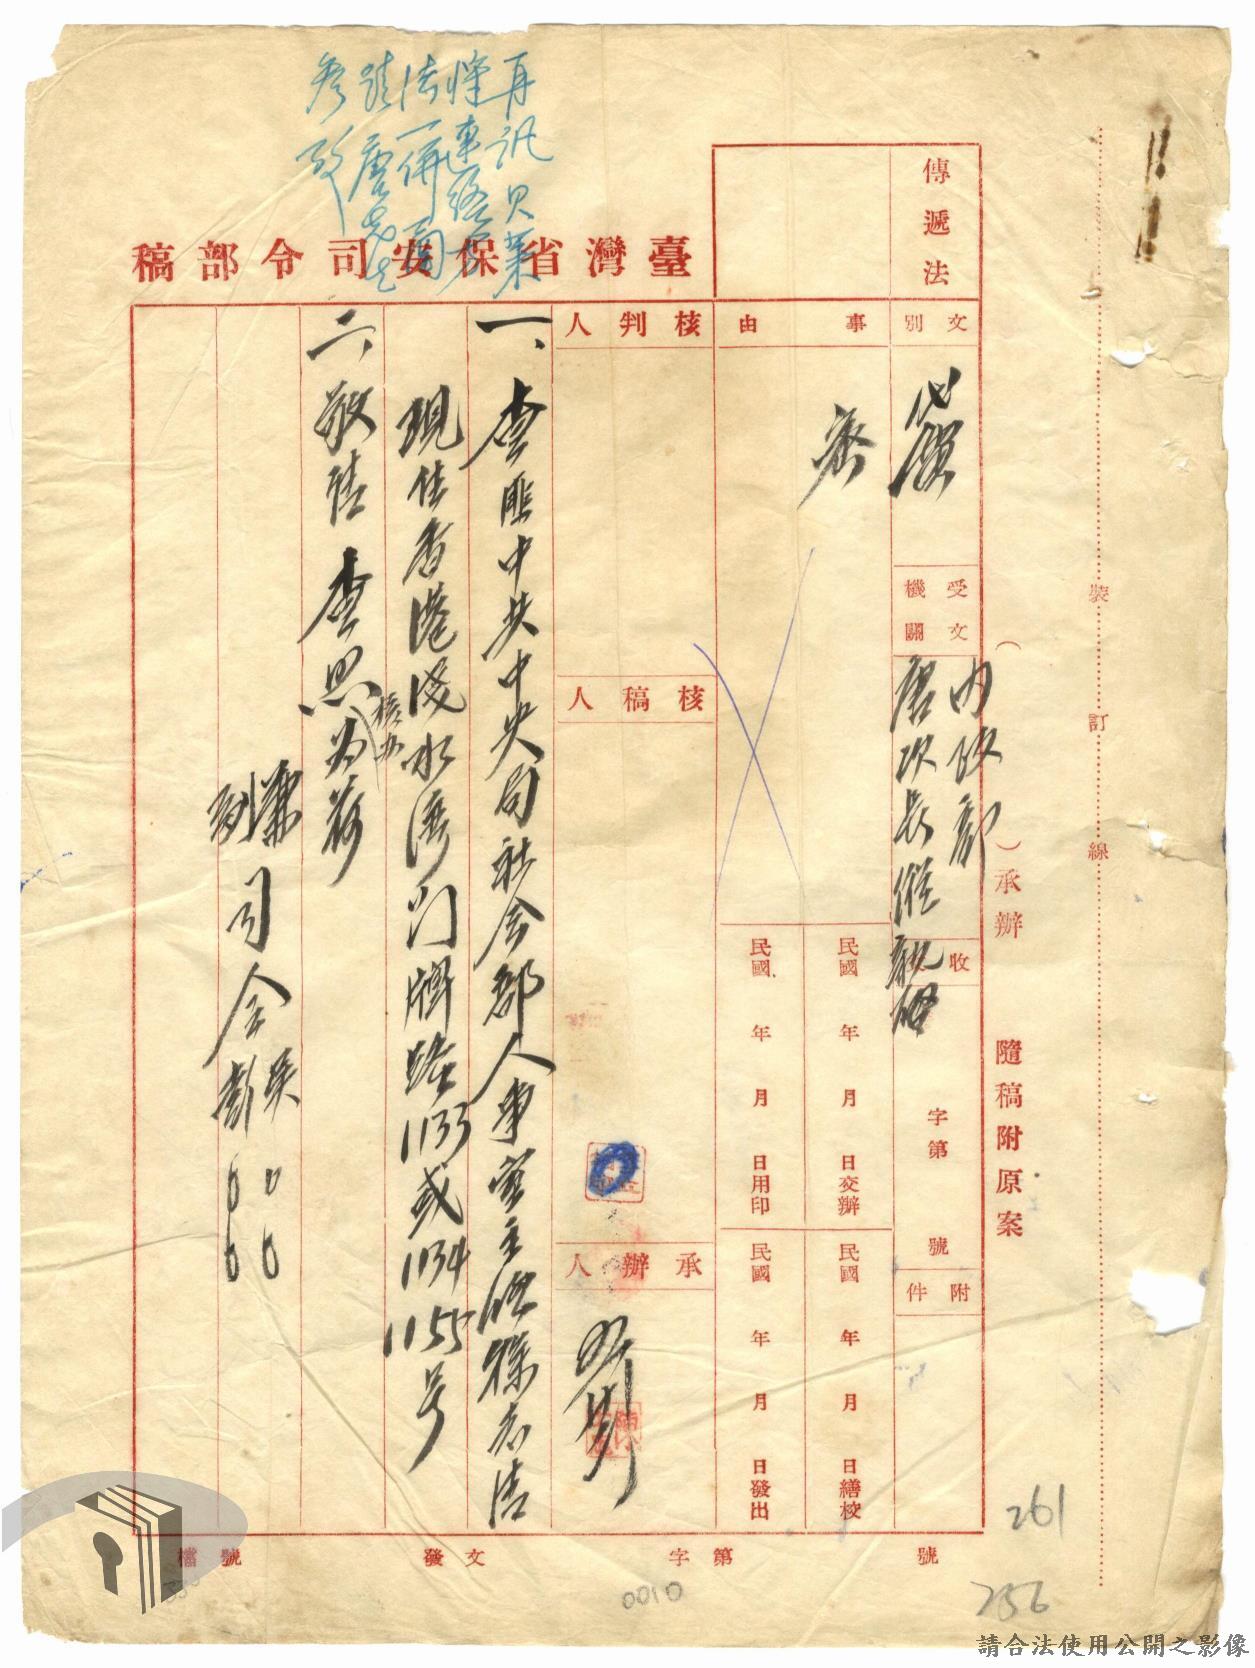 臺灣省保安司令部稿
傳遞法
文別
代電
事由
密
受文機關
內政部
唐次長縱親啟
收文
字第
號
附件
（　　）承辦
隨稿附原案
裝
訂
線
民國　年　月　日交辦
民國　年　月　日繕校
民國　年　月　日用印
民國　年　月　日發出
核判人
核稿人
承辦人
一、查匪中共中央局社会部人事室主任
現住香港淺水湾门牌
1133或1134
1155号
二、敬請查照
核办
为荷
兼司令吳○○
副司令彭○○
再訊
一併
參攷
檔號
發文
字第
號
261
256
0010
請合法使用公開之影像